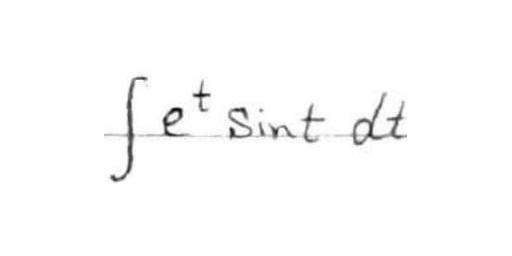 ∫ e^t sin t dt